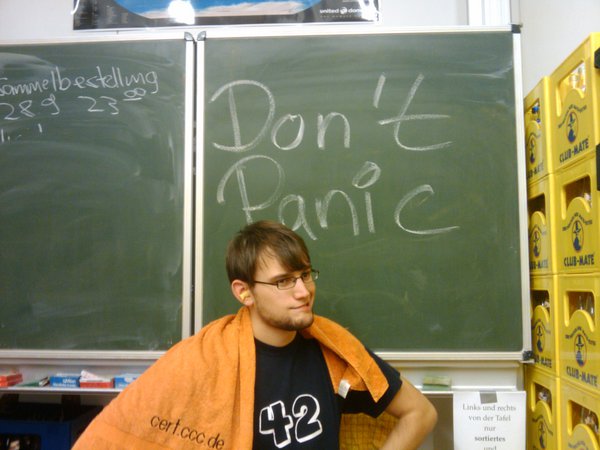 united dom
Sammelbestellung
28.9 23⁰⁰
Don't
Panic
42
cert.ccc.de
CLUB-MATE
CLUB-MATE
CLUB-MATE
CLUB-MATE
Links und rechts
von der Tafel
nur
sortiertes
und